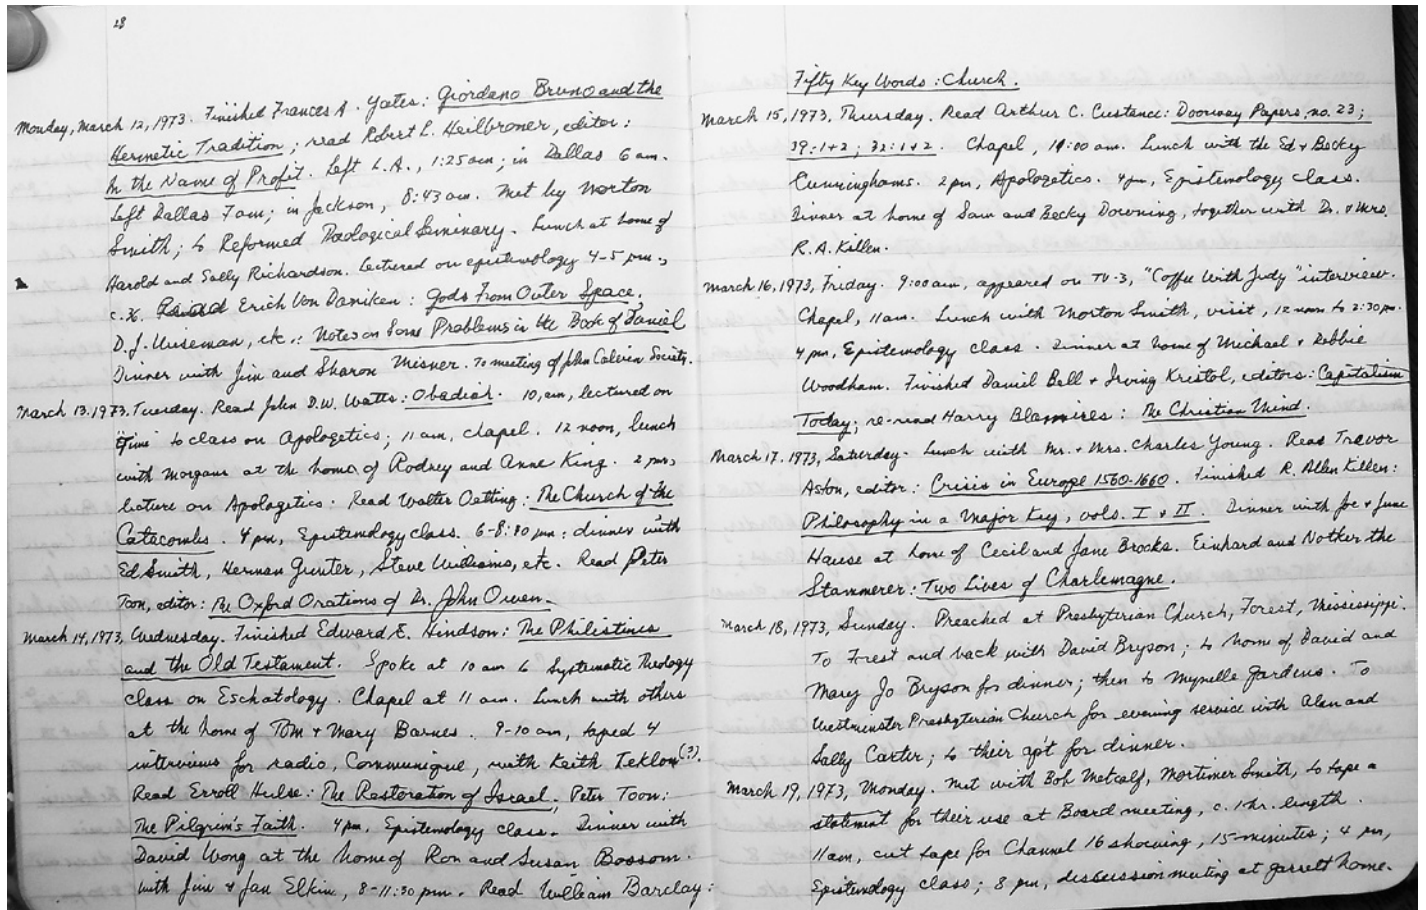 28
Monday, March 12, 1973. Finished Frances A. Yates: Giordano Bruno and the
Hermetic Tradition; read Robert L. Heilbroner, editor:
In the Name of Profit. Left L.A., 1:25 am; in Dallas 6 am.
Left Dallas 7 am; in Jackson, 8:43 am. Met by Morton
Smith; to Reformed Theological Seminary. Lunch at home of
Harold and Sally Richardson. Lectured on epistemology 4-5 pm.,
Read Erich Von Daniken: Gods From Outer Space,
D.J. Wiseman, etc.: Notes on Some Problems in the Book of Daniel
Dinner with Jim and Sharon Misner. To meeting of John Calvin Society.
March 13, 1973, Tuesday. Read John D.W. Watts: Obadiah. 10, am, lectured on
"Time" to class on Apologetics; 11 am, chapel. 12 noon, lunch
with Morgans at the home of Rodney and Anne King. 2 pm,
lecture on Apologetics. Read Walter Oetting: The Church of the
Catacombs. 4 pm, Epistemology class. 6-8:30 pm: dinner with
Ed Smith, Herman Gunter, Steve Williams, etc. Read Peter
Toon, editor: The Oxford Orations of Dr. John Owen.
March 14, 1973, Wednesday. Finished Edward E. Hindson: The Philistines
and the Old Testament. Spoke at 10 am to Systematic Theology
class on Eschatology. Chapel at 11 am. Lunch with others
at the home of Tom + Mary Barnes. 9-10 am, taped 4
interviews for radio, Communique, with Keith Teklow(?).
Read Erroll Hulse: The Restoration of Israel; Peter Toon:
The Pilgrim's Faith. 4 pm, Epistemology class. Dinner with
David Wong at the home of Ron and Susan Bossom.
with Jim + Jan Elkin, 8-11:30 pm. Read William Barclay:
Fifty Key Words: Church.
March 15, 1973, Thursday. Read Arthur C. Custance: Doorway Papers, no. 23;
29:1+2; 32:1+2. Chapel, 11:00 am. Lunch with the Ed + Becky
Cunninghams. 2 pm, Apologetics. 4 pm, Epistemology class.
Dinner at home of Sam and Becky Downing, together with Dr. + Mrs.
R.A. Killen.
March 16, 1973, Friday. 9:00 am, appeared on TV-3, "Coffee With Judy" interview.
Chapel, 11 am. Lunch with Morton Smith, visit, 12 noon to 2:30 pm.
4 pm, Epistemology class. Dinner at home of Michael + Debbie
Woodham. Finished Daniel Bell + Irving Kristol, editors: Capitalism
Today; re-read Harry Blamires: The Christian Mind.
March 17, 1973, Saturday. Lunch with Mr. + Mrs. Charles Young. Read Trevor
Aston, editor: Crisis in Europe 1560-1660. Finished R. Allen Killen:
Philosophy in a Major Key, vols. I + II. Dinner with Joe + June
House at home of Cecil and Jane Brooks. Einhard and Notker the
Stammerer: Two Lives of Charlemagne.
March 18, 1973, Sunday. Preached at Presbyterian Church, Forest, Mississippi.
To Forest and back with David Bryson; to home of David and
Mary Jo Bryson for dinner; then to Mynelle Gardens. To
Westminster Presbyterian Church for evening service with Alan and
Sally Carter; to their ap't for dinner.
March 19, 1973, Monday. Met with Bob Metcalf, Mortimer Smith, to tape a
statement for their use at Board meeting, c. 1 hr. length.
11 am, cut tape for Channel 16 showing, 15 minutes; 4 pm,
Epistemology class; 8 pm, discussion meeting at Garrett home.